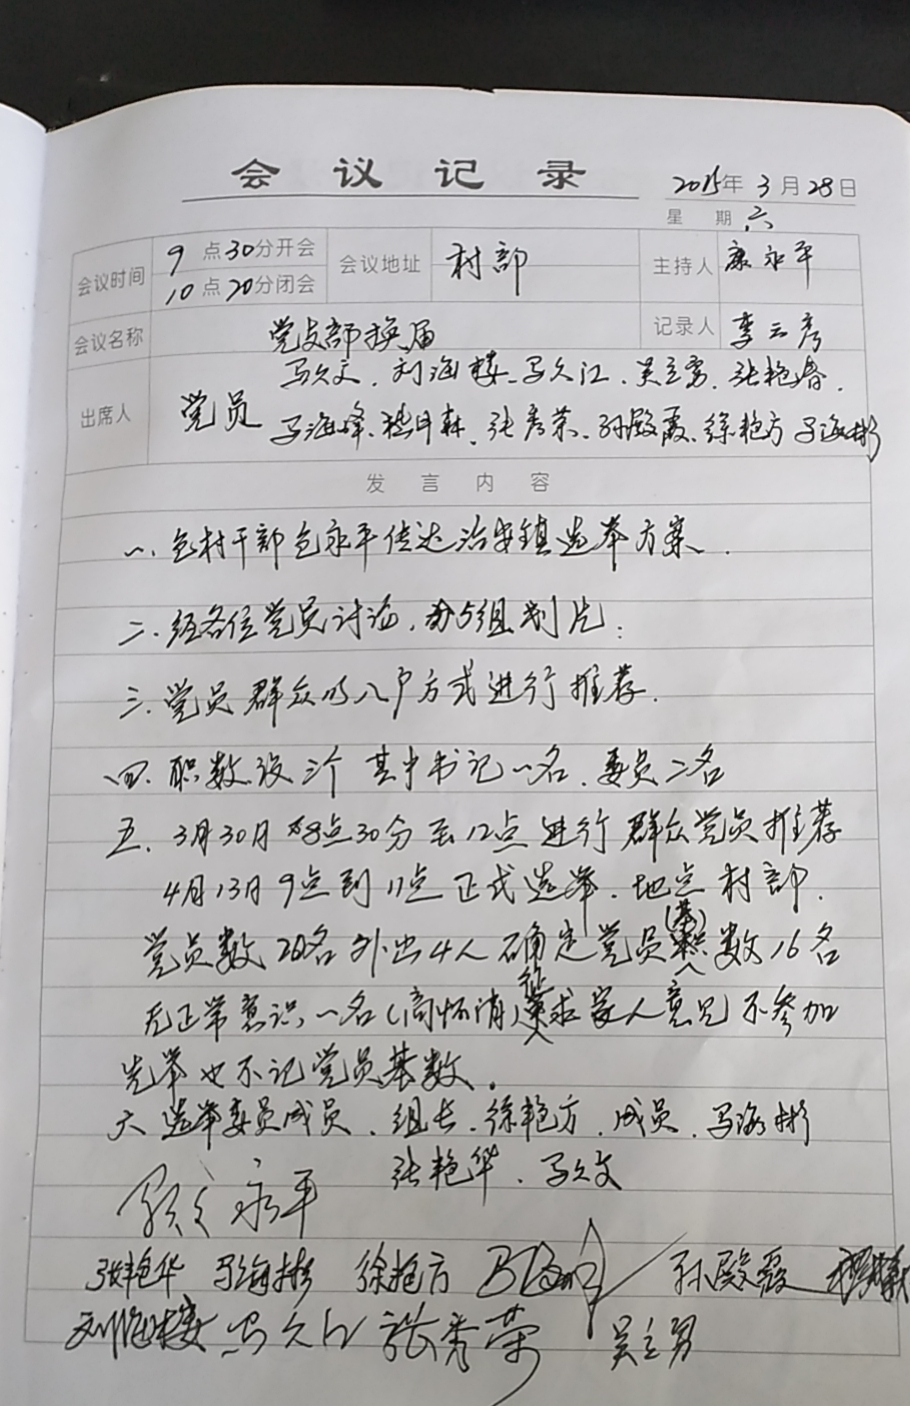 会议记录
2015年3月28日
星期六
会议时间 9点30分开会 会议地址 村部 主持人 康永平
10点20分闭会
会议名称 党支部换届 记录人 李云彦
马久文、刘海楼、马久江、吴立男、张艳春、
出席人 党员
马海峰、 张秀荣、孙殿霞、徐艳方 马海彬
发言内容
一、包村干部包永平传达治安镇选举方案.
二、经各位党员讨论,分5组划片:
三、党员群众以入户方式进行推荐.
四、职数设三个 其中书记一名、委员二名
五、3月30日8点30分至12点进行群众党员推荐
4月13日9点到11点正式选举、地点村部.
党员数20名外出4人确定党员(基)数16名
无正常意识,一名(高怀清)征求家人意见不参加
选举也不记党员基数.
六 选举委员成员、组长、徐艳方、成员、马海彬
张艳华、马久文
永平
张艳华 马海彬 徐艳方 孙殿霞
刘海楼 马久江 张秀荣 吴立男